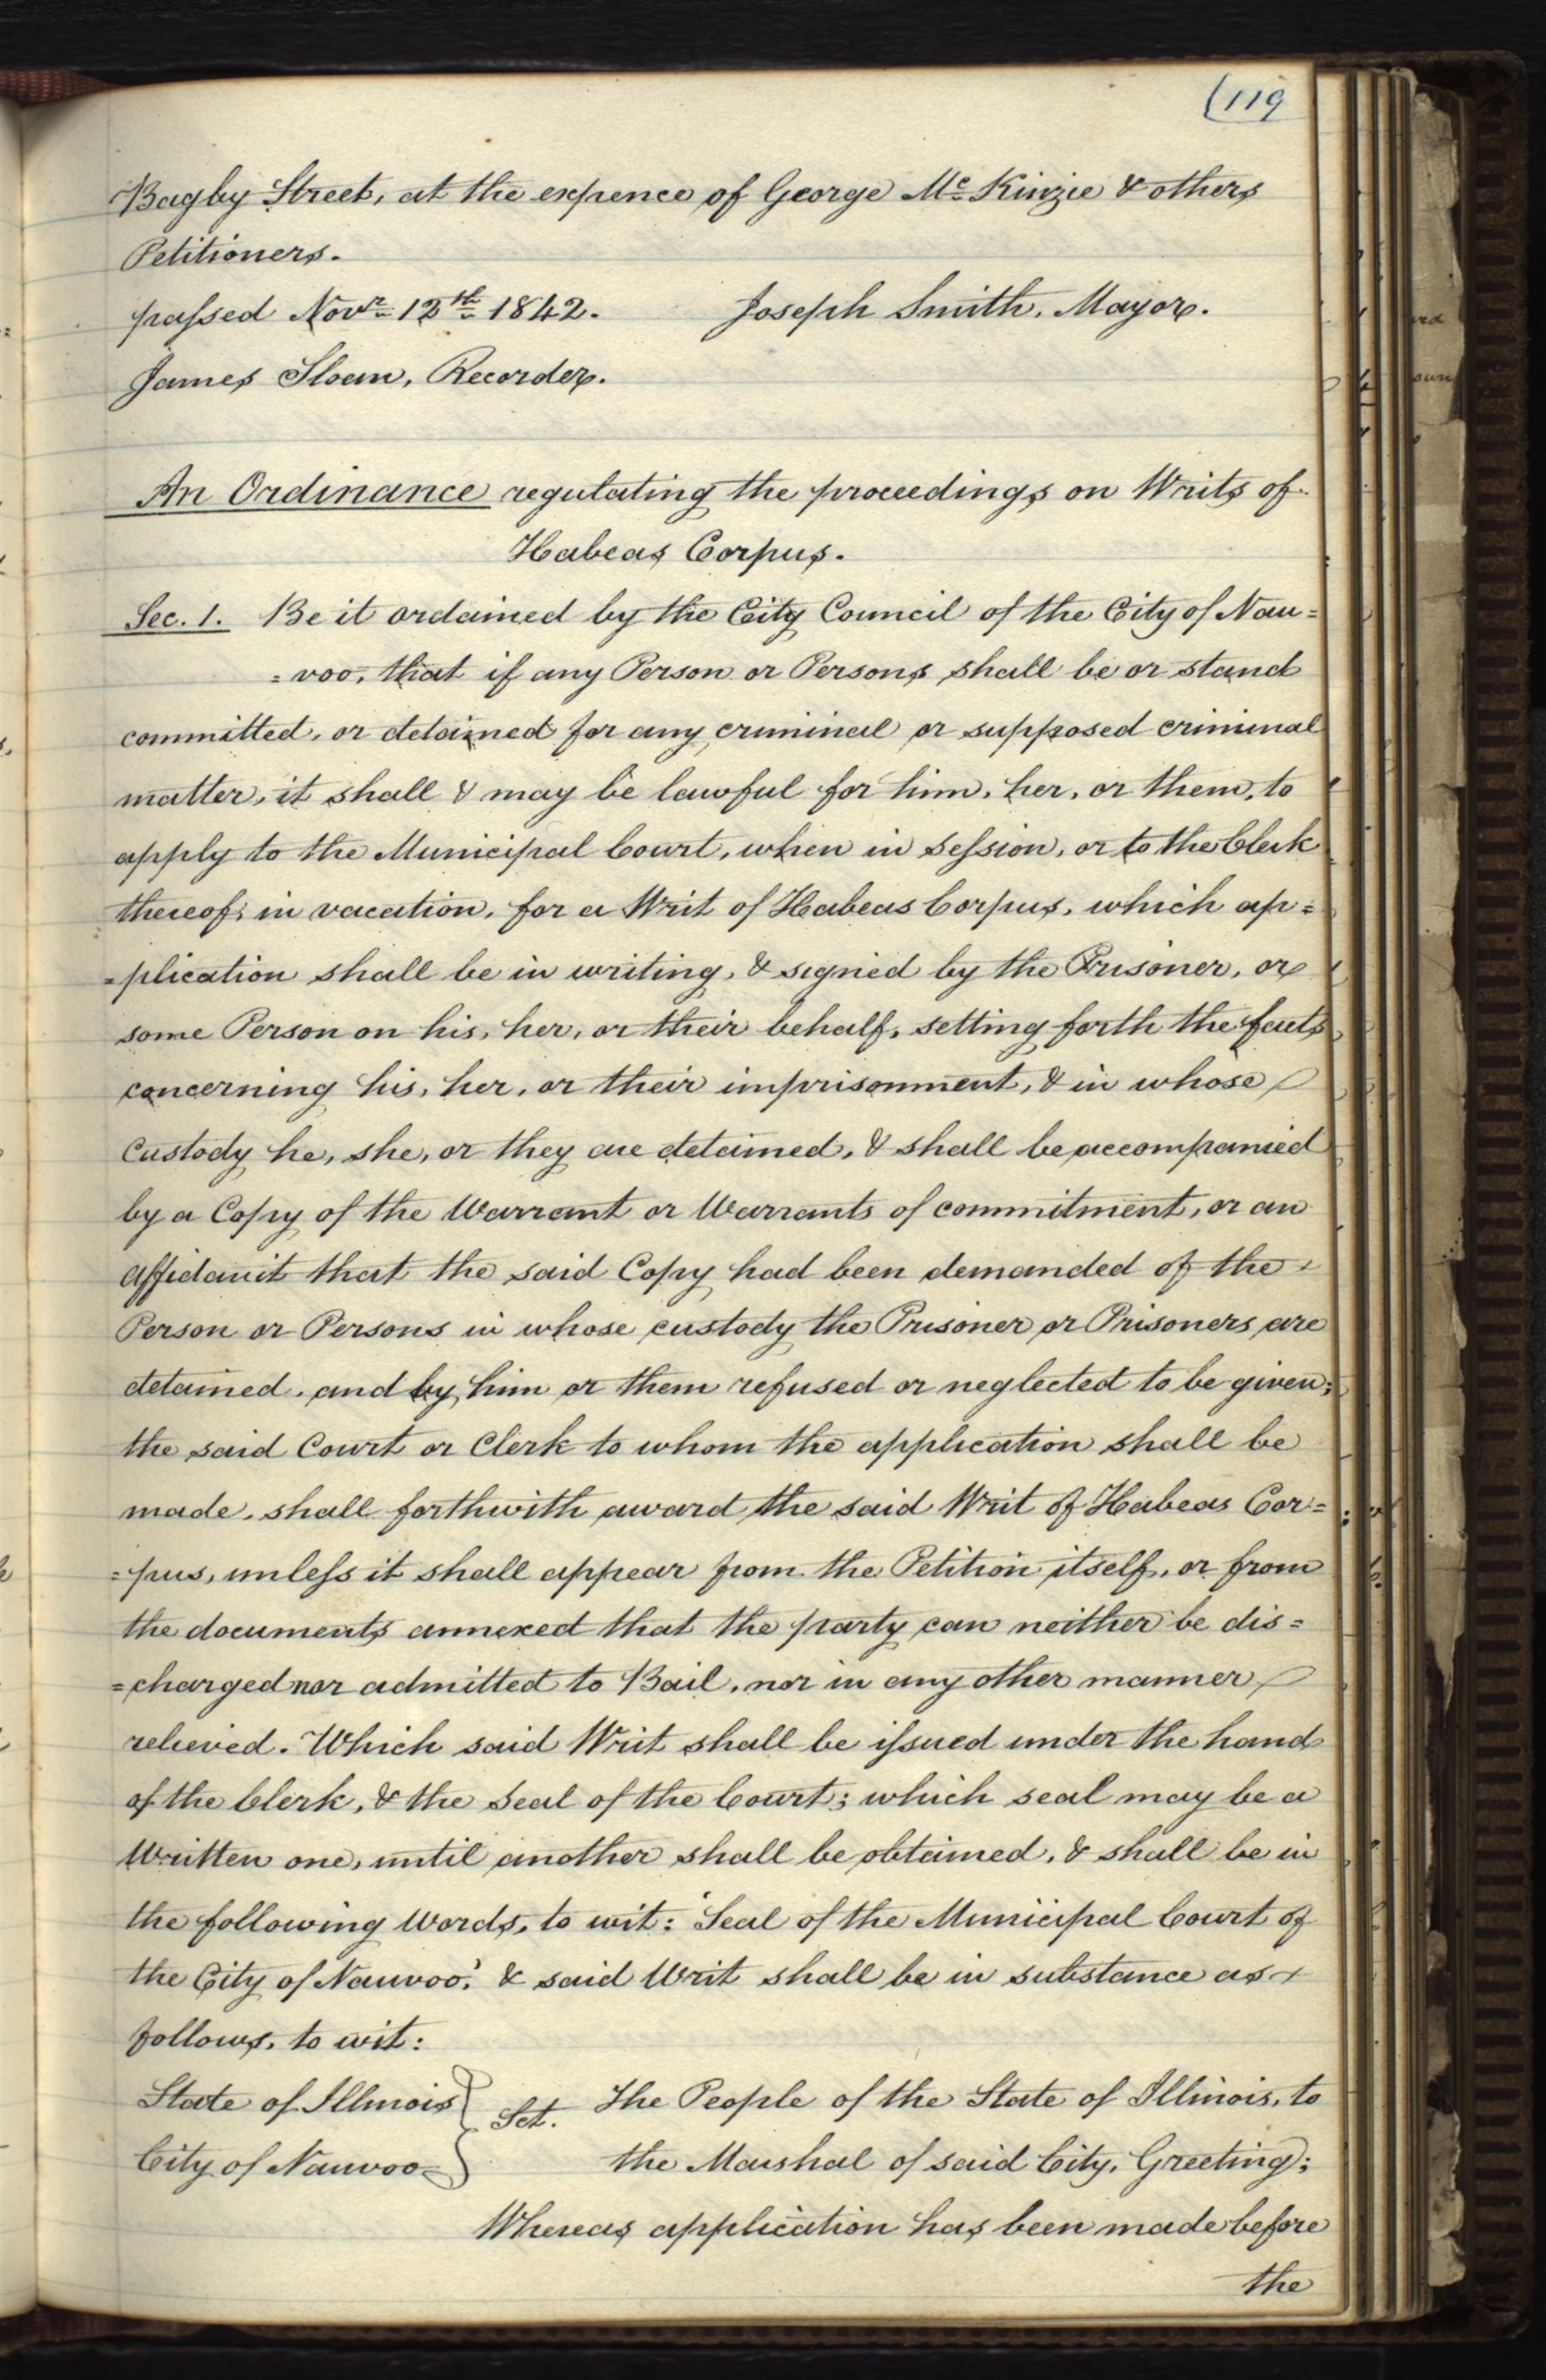 (119
Bagby Street, at the expence of George Mc. Kinzie & others
Petitioners.
passed Novr. 12th. 1842. Joseph Smith, Mayor.
James Sloan, Recorder.
An Ordinance regulating the proceedings on Writs of
Habeas Corpus.
Sec. 1. Be it ordained by the City Council of the City of Nau=
=voo, that if any Person or Persons shall be or stand
committed, or detained for any criminal or supposed criminal
matter, it shall & may be lawful for him, her, or them, to
apply to the Municipal Court, when in Session, or to the Clerk
thereof, in vacation, for a Writ of Habeas Corpus, which ap=
=plication shall be in writing, & signed by the Prisoner, or
some Person on his, her, or their behalf, setting forth the facts
concerning his, her, or their imprisonment, & in whose
custody he, she, or they are detained, & shall be accompanied
by a Copy of the Warrant or Warrants of commitment, or an
affidavit that the said Copy had been demanded of the
Person or Persons in whose custody the Prisoner or Prisoners are
detained, and by him or them refused or neglected to be given;
the said Court or Clerk to whom the application shall be
made, shall forthwith award the said Writ of Habeas Cor=
=pus, unless it shall appear from the Petition itself, or from
the documents annexed that the party can neither be dis=
=charged nor admitted to Bail, nor in any other manner
relieved. Which said Writ shall be issued under the hand
of the Clerk, & the Seal of the Court; which seal may be a
Written one, until another shall be obtained, & shall be in
the following Words, to wit: 'Seal of the Municipal Court of
the City of Nauvoo,' & said Writ shall be in substance as
follows, to wit:
State of Illinois } Sct. The People of the State of Illinois, to
City of Nauvoo } the Marshal of said City, Greeting;
Whereas application has been made before
the